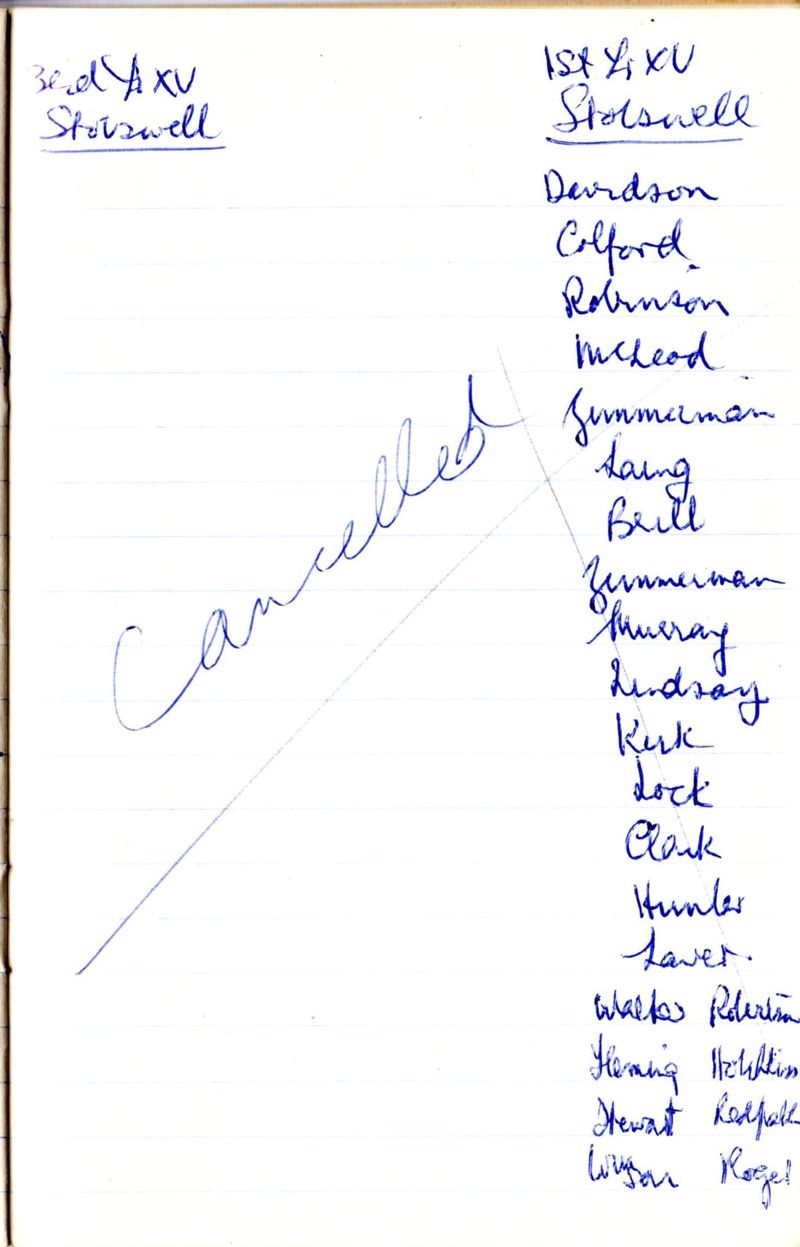 3rd Yr XV
Stobswell
Cancelled
1st Yr XV
Stobswell
Davidson
Colford
Robinson
McLeod
Zimmerman
Laing
Bell
Zimmerman
Murray
Lindsay
Kirk
Lock
Clark
Hunter
Laver.
Walker Robertson
Fleming Hotchkiss
Stewart Redpath
Wilson